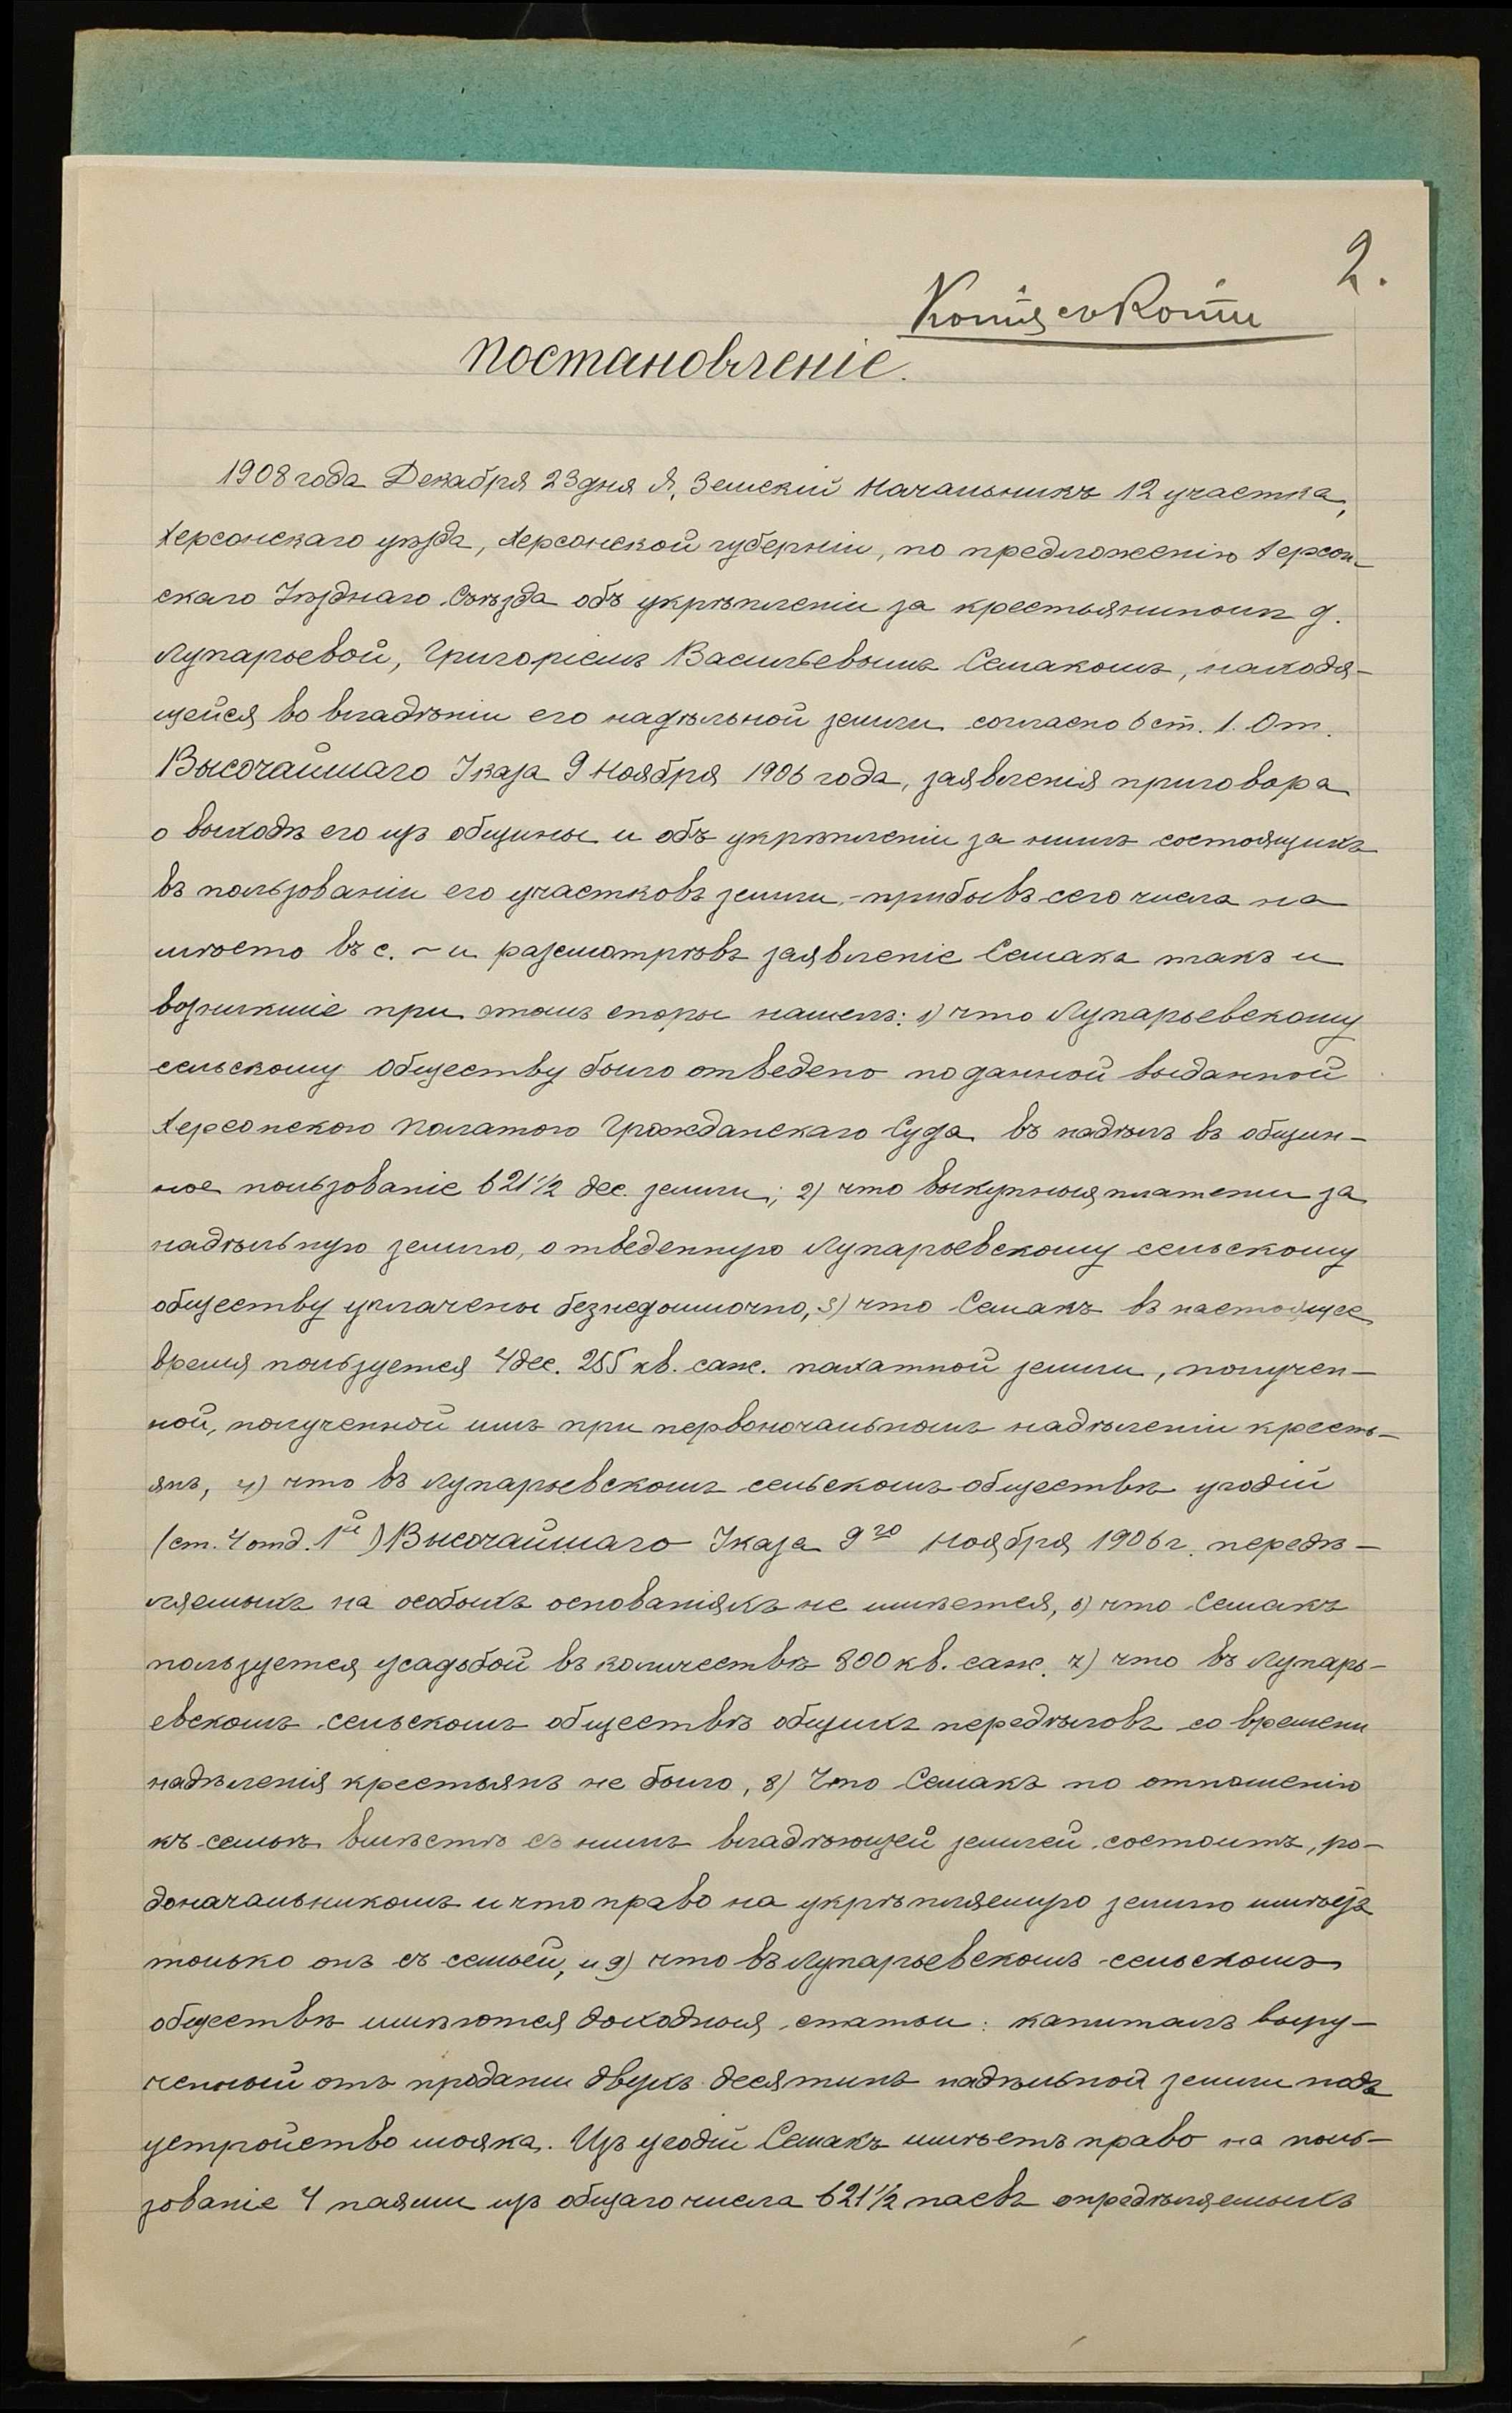 2.
Копія съ Копіи
Постановленіе.
1908 года Декабря 23 дня Я, Земскій Начальникъ 12 участка,
Херсонскаго уѣзда, Херсонской губерніи, по предложенію Херсон-
скаго Уѣзднаго Съѣзда объ укрѣпленіи за крестьяниномъ д.
Лупарьевой, Григоріемъ Васильевымъ Семакомъ, находя-
щейся во владѣніи его надѣльной земли согласно 6 ст. 1. От.
Высочайшаго Указа 9 Ноября 1906 года, заявленія приговора
о выходѣ его изъ общины и объ укрѣпленіи за нимъ состоящихъ
въ пользованіи его участковъ земли, - прибывъ сего числа на
мѣсто въ с. ~ и разсмотрѣвъ заявленіе Семака такъ и
возникшіе при этомъ споры нашелъ: 1) что Лупарьевскому
сельскому обществу было отведено по данной выданной
Херсонскою Палатою Гражданскаго Суда въ надѣлъ въ общин-
ное пользованіе 621½ дес. земли; 2) что выкупныя платежи за
надѣльную землю, отведенную Лупарьевскому сельскому
обществу уплачены безнедоимочно, 3) что Семакъ въ настоящее
время пользуется 4 дес. 255 кв. саж. пахатной земли, получен-
ной, полученной имъ при первоначальномъ надѣленіи кресть-
янъ, 4) что въ Лупарьевскомъ сельскомъ обществѣ угодій
(ст. 4 отд. 1й) Высочайшаго Указа 9го Ноября 1906 г. передѣ-
ляемыхъ на особыхъ основаніяхъ не имѣется, 6) что Семакъ
пользуется усадьбой въ количествѣ 800 кв. саж. 7) что въ Лупарь-
евскомъ сельскомъ обществѣ общихъ передѣловъ со времени
надѣленія крестьянъ не было, 8) Что Семакъ по отношенію
къ семьѣ вмѣстѣ съ нимъ владѣющей землей состоитъ, ро-
доначальникомъ и что право на укрѣпляемую землю имѣетъ
только онъ съ семьей, и 9) что въ Лупарьевскомъ сельскомъ
обществѣ имѣются доходныя статьи: капиталъ выру-
ченный отъ продажи двухъ десятинъ надѣльной земли подъ
устройство маяка. Изъ угодій Семакъ имѣетъ право на поль-
зованіе 4 паями изъ общаго числа 621½ паевъ опредѣляемыхъ